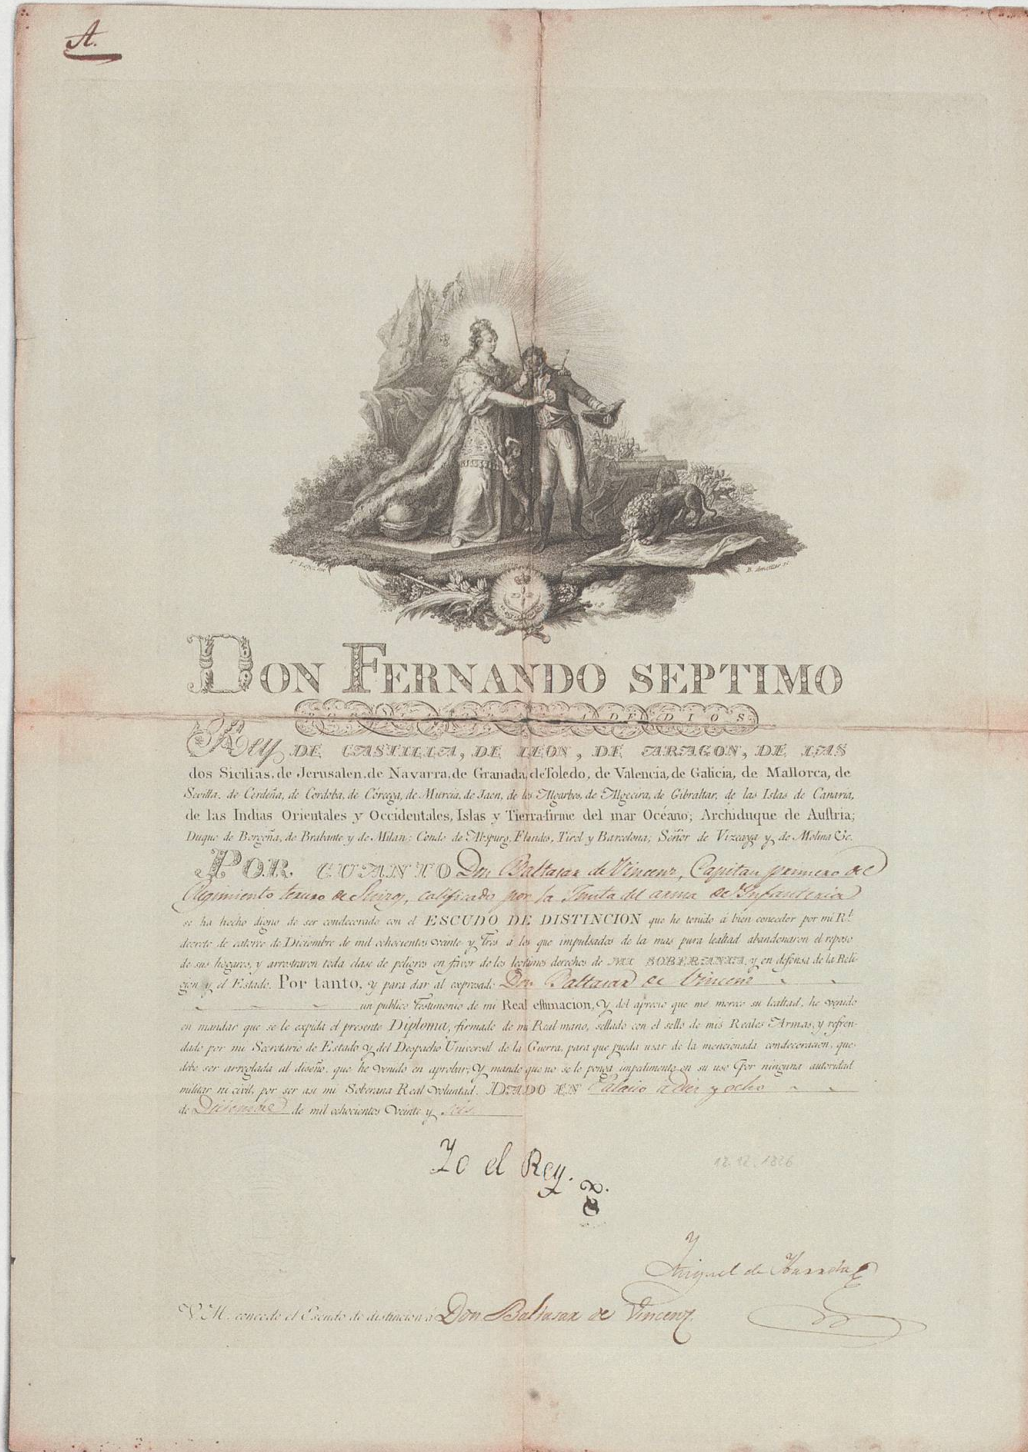 A.
DON FERNANDO SEPTIMO
POR LA GRACIA DE DIOS
Rey DE CASTILLA, DE LEON, DE ARAGON, DE LAS
dos Sicilias, de Jerusalen, de Navarra, de Granada, de Toledo, de Valencia, de Galicia, de Mallorca, de
Sevilla, de Cerdeña, de Cordoba, de Córcega, de Murcia, de Jaen, de los Algarbes, de Algecira, de Gibraltar, de las Islas de Canaria,
de las Indias Orientales y Occidentales, Islas y Tierra-firme del mar Océano; Archiduque de Austria;
Duque de Borgoña, de Brabante y de Milan; Conde de Abspurg, Flandes, Tirol y Barcelona; Señor de Vizcaya y de Molina &c.
POR CUANTO Don Baltasar de Vincenz, Capitan primero del
Regimiento tercero de Suizos, calificado por la Junta del arma de Infanteria
se ha hecho digno de ser condecorado con el ESCUDO DE DISTINCION que he tenido á bien conceder por mi Rl.
decreto de catorce de Diciembre de mil ochocientos veinte y tres á los que impulsados de la mas pura lealtad abandonaron el reposo
de sus hogares, y arrostraron toda clase de peligros en favor de los legítimos derechos de MI SOBERANIA, y en defensa de la Reli-
gion y el Estado. Por tanto, y para dar al expresado Don Baltasar de Vincenz
un publico testimonio de mi Real estimacion, y del aprecio que me merece su lealtad, he venido
en mandar que se le expida el presente Diploma, firmado de mi Real mano, sellado con el sello de mis Reales Armas, y refren-
dado por mi Secretario de Estado y del Despacho Universal de la Guerra, para que pueda usar de la mencionada condecoracion, que
debe ser arreglada al diseño, que he venido en aprobar; y mando que no se le ponga impedimento en su uso por ninguna autoridad
militar ni civil, por ser asi mi Soberana Real voluntad. DADO EN Palacio a diez y ocho
de Diciembre de mil ochocientos veinte y seis
Yo el Rey.
12.12.1826
Miguel de
V. M. concede el Escudo de distincion á Don Baltasar de Vincenz